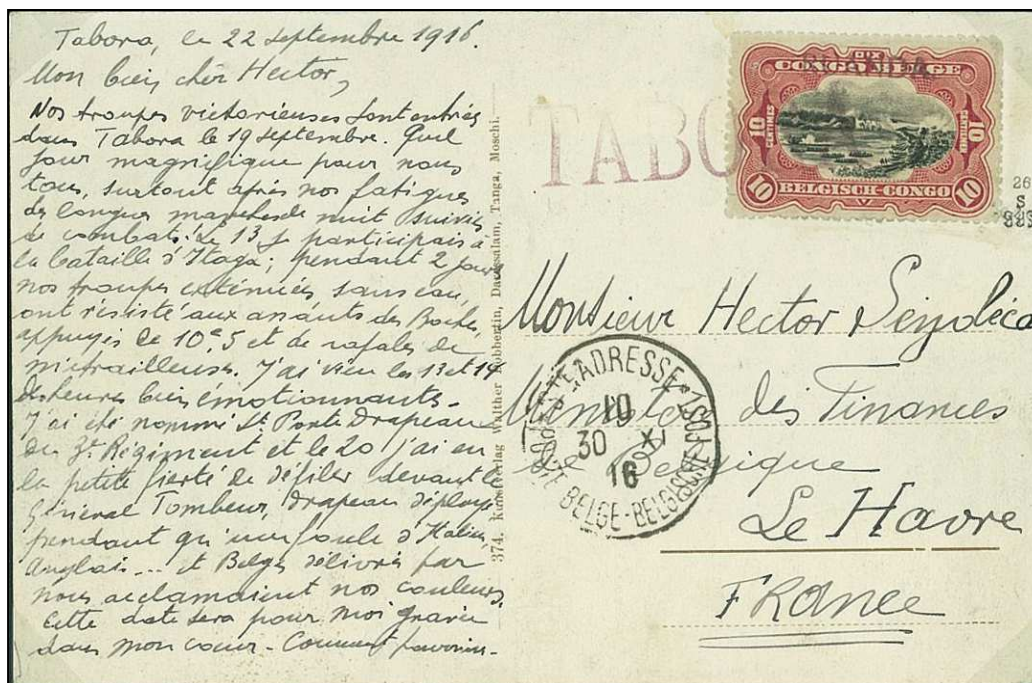 Tabora, le 22 septembre 1916.
Mon bien cher Hector,
Nos troupes victorieuses sont entrées
dans Tabora le 19 septembre. Quel
jour magnifique pour nous
tous, surtout après nos fatigues
de longues marches de nuit suivies
de combats. Le 13 je participais à
la bataille d'Itaga; pendant 2 jours
nos troupes exténuées sans eau,
ont résisté aux assauts des Boches,
appuyés de 10c,5 et de rafales de
mitrailleuses. J'ai vécu les 13 et 14
des heures bien émotionnantes.
J'ai été nommé Lt Porte Drapeau
du 3e Régiment et le 20 j'ai eu
la petite fierté de défiler devant le
Général Tombeur, drapeau déployé
pendant qu'une foule d'Italiens,
Anglais ... et Belges délivrés par
nous acclamaient nos couleurs.
Cette date sera pour moi gravée
dans mon cœur. Comment
374. Kunstverlag Walther Dobbertin, Daressalam, Tanga, Moschi.
TABO
DIX
CONGO BELGE
10 CENTIMES
10 CENTIEMEN
10 BELGISCH-CONGO 10
26
S
Monsieur Hector
Ministère des Finances
de Belgique
Le Havre
FRANCE
LE ADRESSE
10
30 XI
16
POSTE BELGE-BELGISCHE POST